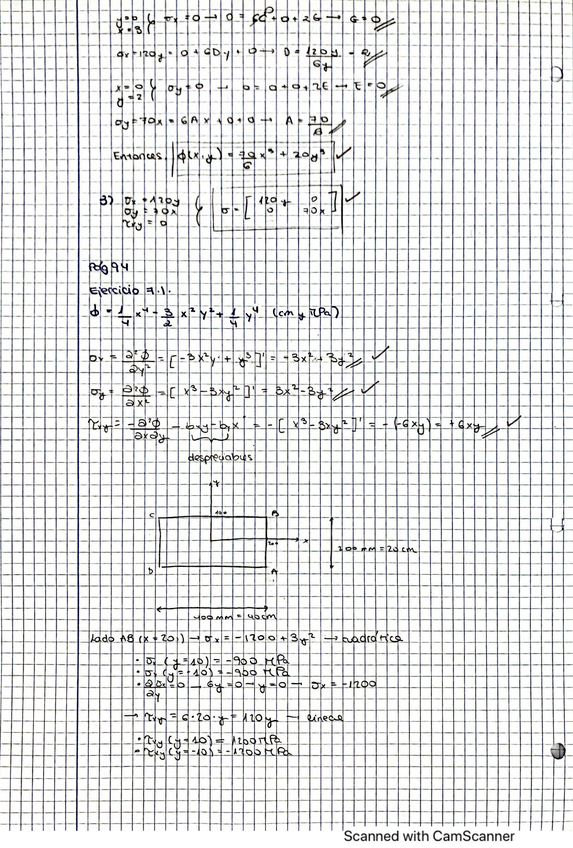 y=0
x=3 } σx = 0 → 0 = 6C + 0 + 2G → G = 0
σx = 120y = 0 + 6Dy + 0 → D = 120y / 6y = 
x=0
y=2 } σy = 0 → 0 = 0 + 0 + 2E → E = 0
σy = 70x = 6Ax + 0 + 0 → A = 70/
Entonces, ϕ(x,y) = 70/6 x³ + 20y³ ✓
3) σx = 120y
σy = 70x
τxy = 0 } σ = [ 120y 0
0 70x ] ✓
Pág 94
Ejercicio 7.1.
ϕ = 1/4 x⁴ - 3/2 x²y² + 1/4 y⁴ (cm y MPa)
σx = ∂²ϕ/∂y² = [-3x²y + y³]' = -3x² + 3y² ✓
σy = ∂²ϕ/∂x² = [x³ - 3xy²]' = 3x² - 3y² ✓
τxy = -∂²ϕ/∂x∂y - bxy - byx = -[x³ - 3xy²]' = -(-6xy) = +6xy ✓
despreciables
Y
C 400 B
200 x
200 mm = 20 cm
D A
400 mm = 40 cm
Lado AB (x = 20) → σx = -1200 + 3y² → cuadrática
· σx (y=10) = -900 MPa
· σx (y=-10) = -900 MPa
· ∂σx/∂y = 0 → 6y = 0 → y = 0 → σx = -1200
→ τxy = 6·20·y = 120y → lineal
· τxy (y=10) = 1200 MPa
· τxy (y=-10) = -1200 MPa
Scanned with CamScanner